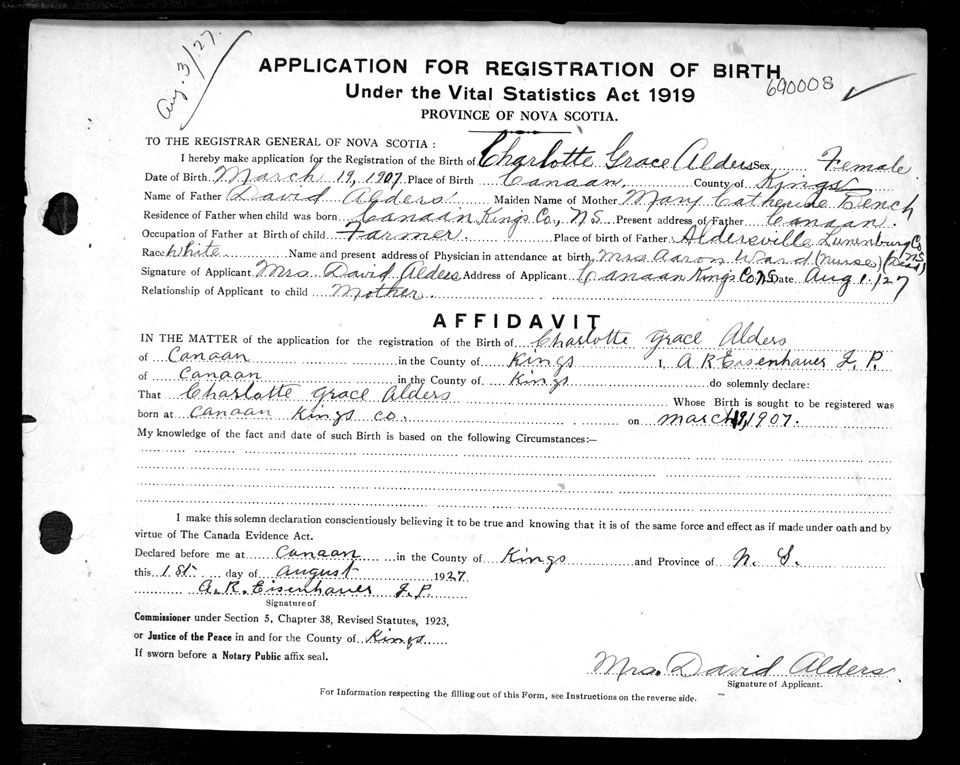 Aug. 3/27.
APPLICATION FOR REGISTRATION OF BIRTH
690008
Under the Vital Statistics Act 1919
PROVINCE OF NOVA SCOTIA.
TO THE REGISTRAR GENERAL OF NOVA SCOTIA :
I hereby make application for the Registration of the Birth of Charlotte Grace Alders Sex Female
Date of Birth March 19, 1907 Place of Birth Canaan, County of Kings
Name of Father David Alders Maiden Name of Mother Mary Catherine
Residence of Father when child was born Canaan Kings Co., N.S. Present address of Father Canaan.
Occupation of Father at Birth of child Farmer. Place of birth of Father Aldersville Lunenburg Co NS
Race White Name and present address of Physician in attendance at birth Mrs Aaron Ward (Nurse) (Dead)
Signature of Applicant Mrs. David Alders Address of Applicant Canaan Kings Co NS Date Aug 1./27
Relationship of Applicant to child Mother.
AFFIDAVIT
IN THE MATTER of the application for the registration of the Birth of Charlotte Grace Alders
of Canaan in the County of Kings I, A R Eisenhauer J. P.
of Canaan in the County of Kings do solemnly declare:
That Charlotte Grace Alders Whose Birth is sought to be registered was
born at Canaan Kings Co. on March 19, 1907.
My knowledge of the fact and date of such Birth is based on the following Circumstances:—
I make this solemn declaration conscientiously believing it to be true and knowing that it is of the same force and effect as if made under oath and by
virtue of The Canada Evidence Act.
Declared before me at Canaan in the County of Kings and Province of N. S.
this 1 St day of August 1927
A. R. Eisenhauer J. P.
Signature of
Commissioner under Section 5, Chapter 38, Revised Statutes, 1923,
or Justice of the Peace in and for the County of Kings
If sworn before a Notary Public affix seal.
Mrs. David Alders.
Signature of Applicant.
For Information respecting the filling out of this Form, see Instructions on the reverse side.